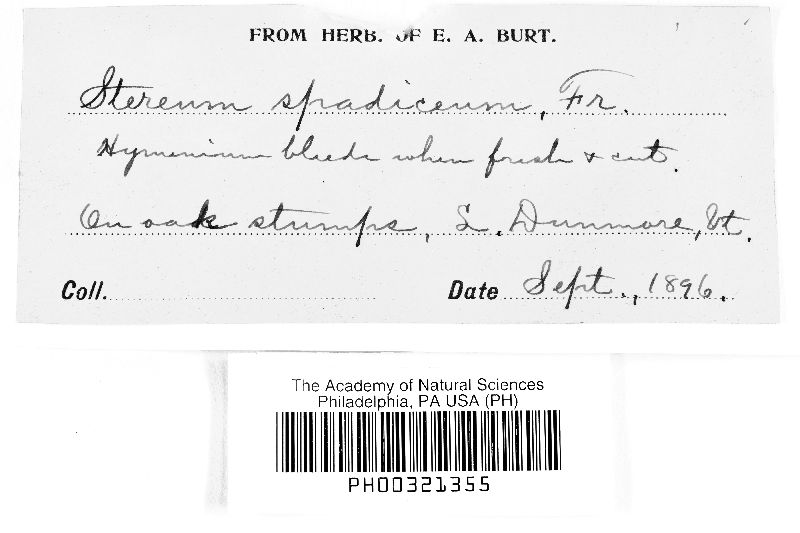 FROM HERB. OF E. A. BURT.
Stereum spadiceum, Fr.
Hymenium bleeds when fresh & cut.
On oak stumps, L. Dunmore, Vt.
Coll.
Date Sept., 1896.
The Academy of Natural Sciences
Philadelphia, PA USA (PH)
PH00321355